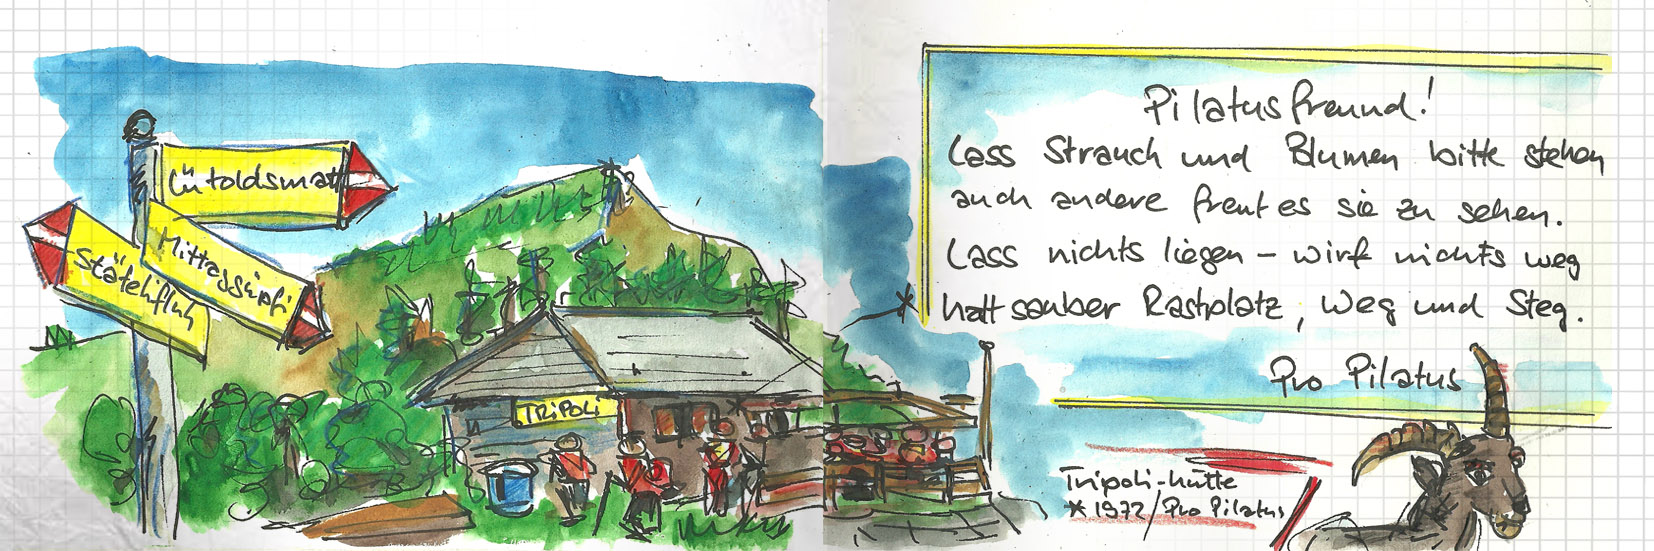 Lütoldsmatt
Mittaggüpfi
Stäfeliflue
TRiPOLi
Pilatusfreund!
Lass Strauch und Blumen bitte stehen
auch andere freut es sie zu sehen.
Lass nichts liegen – wirf nichts weg
halt sauber Rastplatz, Weg und Steg.
Pro Pilatus
Tripoli-hütte
* 1972 / Pro Pilatus